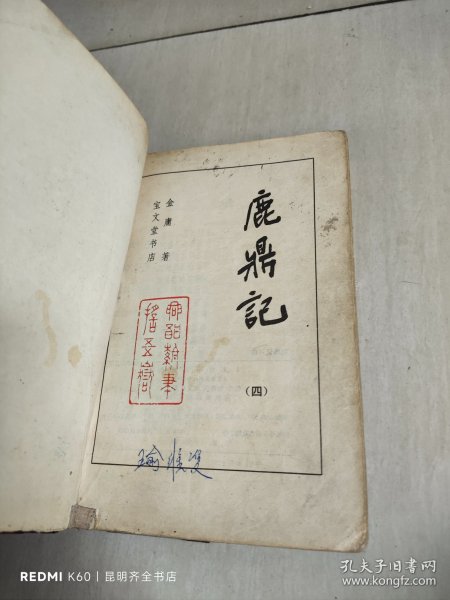 鹿鼎記
(四)
金庸 著
宝文堂书店
REDMI K60 | 昆明齐全书店
孔夫子旧书网
www.kongfz.com